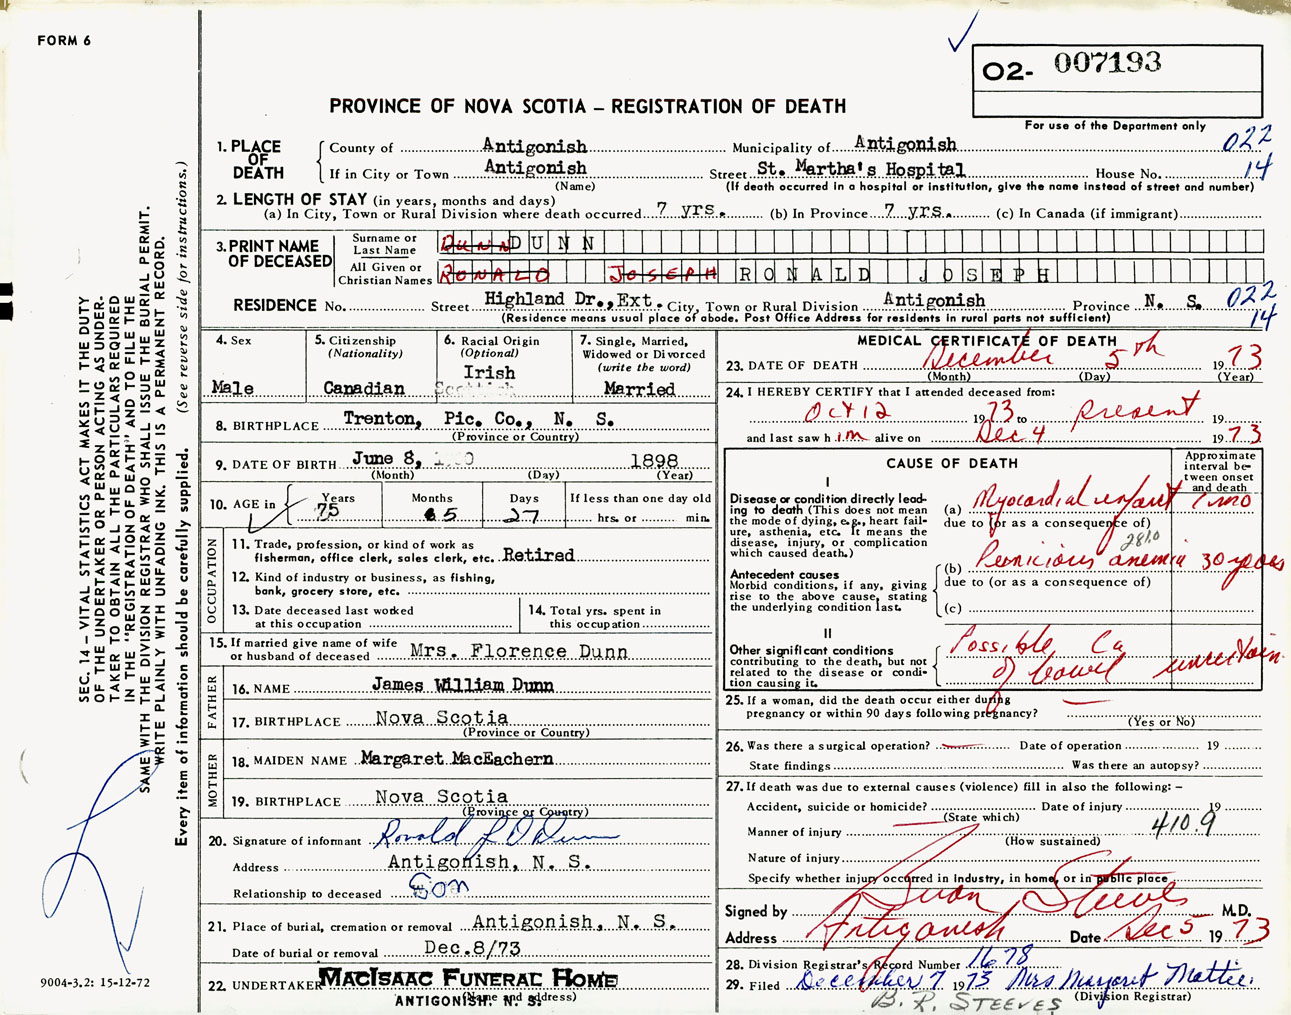 FORM 6
O2- 007193
For use of the Department only
PROVINCE OF NOVA SCOTIA – REGISTRATION OF DEATH
022
14
1. PLACE OF DEATH
County of Antigonish Municipality of Antigonish
If in City or Town Antigonish Street St. Martha's Hospital House No.
(Name) (If death occurred in a hospital or institution, give the name instead of street and number)
2. LENGTH OF STAY (in years, months and days)
(a) In City, Town or Rural Division where death occurred 7 yrs. (b) In Province 7 yrs. (c) In Canada (if immigrant)
3. PRINT NAME OF DECEASED
Surname or Last Name DUNN DUNN
All Given or Christian Names RONALD JOSEPH RONALD JOSEPH
RESIDENCE No. Street Highland Dr., Ext. City, Town or Rural Division Antigonish Province N. S. 022
(Residence means usual place of abode. Post Office Address for residents in rural parts not sufficient) 14
4. Sex
Male
5. Citizenship
(Nationality)
Canadian
6. Racial Origin
(Optional)
Irish
Scottish
7. Single, Married,
Widowed or Divorced
(write the word)
Married
8. BIRTHPLACE Trenton, Pic. Co., N. S.
(Province or Country)
9. DATE OF BIRTH June 8, 1898
(Month) (Day) (Year)
10. AGE in
Years Months Days If less than one day old
75 5 27 hrs. or min.
OCCUPATION
11. Trade, profession, or kind of work as
fisherman, office clerk, sales clerk, etc. Retired
12. Kind of industry or business, as fishing,
bank, grocery store, etc.
13. Date deceased last worked
at this occupation
14. Total yrs. spent in
this occupation
15. If married give name of wife
or husband of deceased Mrs. Florence Dunn
FATHER
16. NAME James William Dunn
17. BIRTHPLACE Nova Scotia
(Province or Country)
MOTHER
18. MAIDEN NAME Margaret MacEachern
19. BIRTHPLACE Nova Scotia
(Province or Country)
20. Signature of informant Ronald J D Dunn
Address Antigonish, N. S.
Relationship to deceased Son
21. Place of burial, cremation or removal Antigonish, N. S.
Date of burial or removal Dec. 8/73
22. UNDERTAKER MACISAAC FUNERAL HOME
(Name and address)
ANTIGONISH, N. S.
MEDICAL CERTIFICATE OF DEATH
23. DATE OF DEATH December 5th 1973
(Month) (Day) (Year)
24. I HEREBY CERTIFY that I attended deceased from:
Oct 12 1973 to present 19
and last saw him alive on Dec 4 1973
CAUSE OF DEATH
Approximate interval between onset and death
I
Disease or condition directly leading to death (This does not mean the mode of dying, e.g., heart failure, asthenia, etc. It means the disease, injury, or complication which caused death.)
(a) Myocardial infarct 1 mo
due to (or as a consequence of)
281.0
Antecedent causes
Morbid conditions, if any, giving rise to the above cause, stating the underlying condition last.
(b) Pernicious anemia 30 years
due to (or as a consequence of)
(c)
II
Other significant conditions
contributing to the death, but not related to the disease or condition causing it.
Possible Ca
of bowel uncertain
25. If a woman, did the death occur either during
pregnancy or within 90 days following pregnancy?
(Yes or No)
26. Was there a surgical operation? Date of operation 19
State findings Was there an autopsy?
27. If death was due to external causes (violence) fill in also the following: –
Accident, suicide or homicide? Date of injury 19
(State which)
Manner of injury 410.9
(How sustained)
Nature of injury
Specify whether injury occurred in industry, in home, or in public place
Signed by Steeves M.D.
Address Antigonish Date Dec 5 1973
28. Division Registrar's Record Number 1678
29. Filed December 7 1973 Mrs Margaret Mattie
(Division Registrar)
B. R. STEEVES
SEC. 14 – VITAL STATISTICS ACT MAKES IT THE DUTY
OF THE UNDERTAKER OR PERSON ACTING AS UNDER-
TAKER TO OBTAIN ALL THE PARTICULARS REQUIRED
IN THE "REGISTRATION OF DEATH" AND TO FILE THE
SAME WITH THE DIVISION REGISTRAR WHO SHALL ISSUE THE BURIAL PERMIT.
WRITE PLAINLY WITH UNFADING INK. THIS IS A PERMANENT RECORD.
Every item of information should be carefully supplied. (See reverse side for instructions.)
9004-3.2: 15-12-72